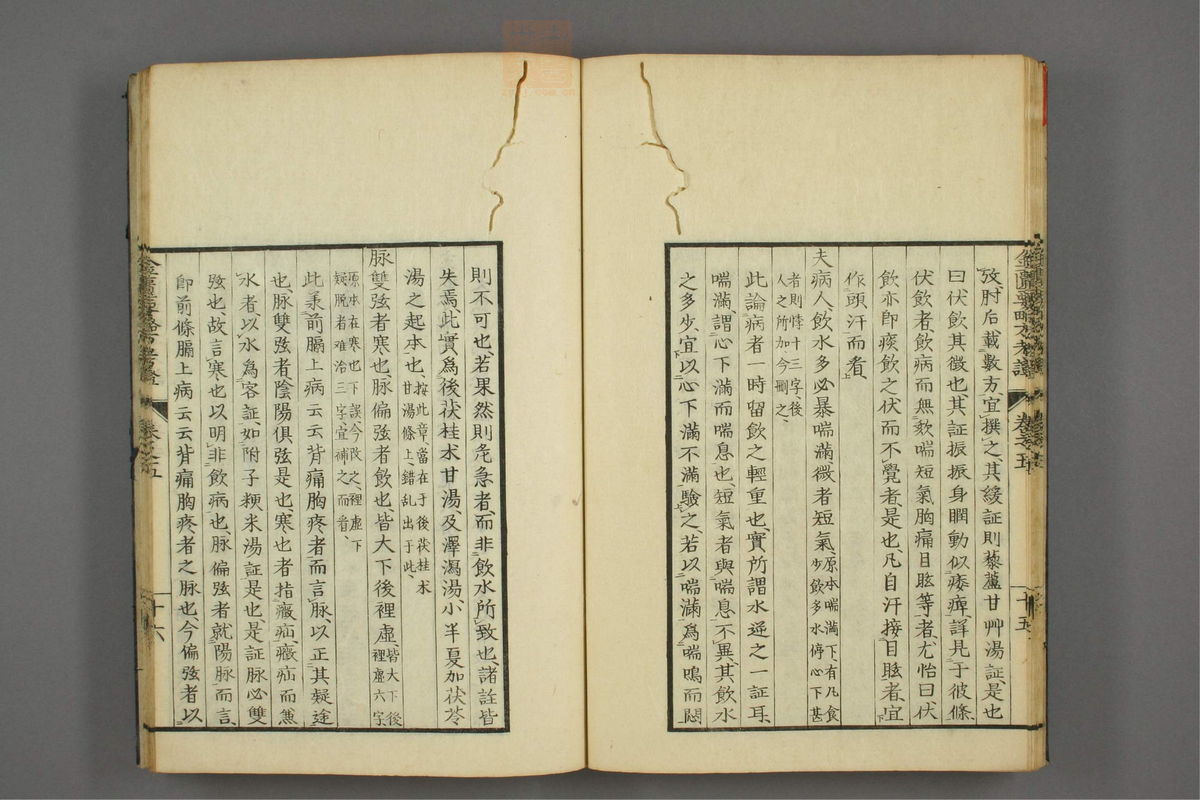 金匱要略方考證 卷之五 十五
攷肘后載數方宜撰之其緩証則藜蘆甘艸湯証是也
曰伏飲其徵也其証振振身瞤動似痿痺詳見于彼條
伏飲者飲病而無欬喘短氣胸痛目眩等者尤怡曰伏
飲亦即痰飲之伏而不覺者是也凡自汗接目眩者宜
作頭汗而看
夫病人飲水多必暴喘滿微者短氣原本喘滿下有凡食
少飲多水停心下甚
者則悸十三字後
人之所加今刪之
此論病者一時留飲之輕重也實所謂水逆之一証耳
喘滿謂心下滿而喘息也短氣者與喘息不異其飲水
之多少宜以心下滿不滿驗之若以喘滿為喘鳴而悶
則不可也若果然則危急者而非飲水所致也諸註皆
失焉此實為後茯桂朮甘湯及澤瀉湯小半夏加茯苓
湯之起本也按此章當在于後茯桂朮
甘湯條上錯亂出于此
脉雙弦者寒也脉偏弦者飲也皆大下後裡虛皆大下後
裡虛六字
原本在寒也下誤今改之裡虛下
疑脫者难治三字宜補之而看
此兼前膈上病云云背痛胸疼者而言脉以正其疑途
也脉雙弦者陰陽俱弦是也寒也者指癥疝癥疝而無
水者以水為客証如附子粳米湯証是也是証脉必雙
弦也故言寒也以明非飲病也脉偏弦者就陽脉而言
即前條膈上病云云背痛胸疼者之脉也今偏弦者以
金匱要略方考證 卷之五 十六